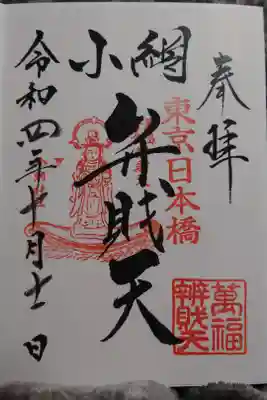 奉拝
東京日本橋
小網
弁財天
萬福
辨財天
令和四年十月十一日